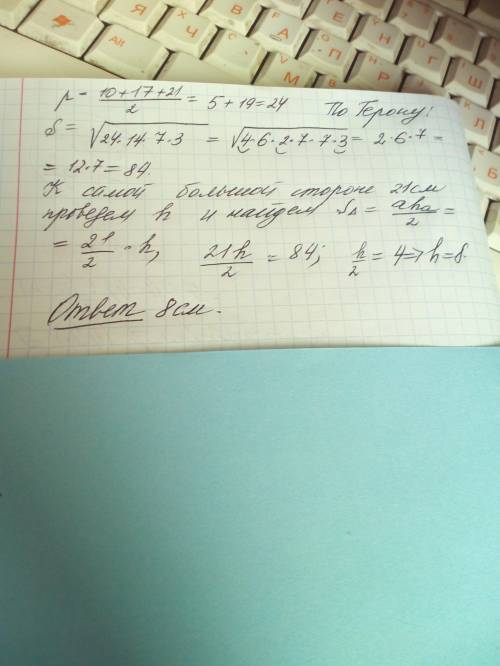 p = \frac{10+17+21}{2} = 5+19=24 По Герону:
S = \sqrt{24·14·7·3} = \sqrt{4·6·2·7·7·3} = 2·6·7 =
= 12·7 = 84.
К самой большой стороне 21см
проведем h и найдем S_Δ = \frac{ah_a}{2} =
= \frac{21}{2} · h, \frac{21h}{2} = 84; \frac{h}{2} = 4 ⇒ h=8.
Ответ 8см.